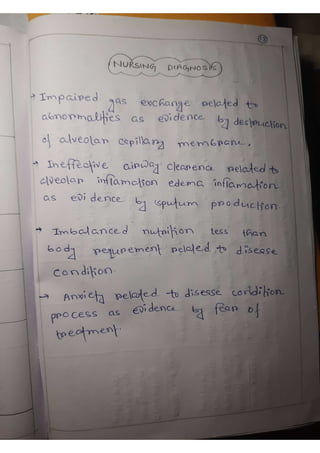 NURSING DIAGNOSIS
→ Impaired gas exchange related to
abnormalities as evidence by destruction
of alveolar capillary membrane.
→ Ineffective airway clearence related to
alveolar inflamation edema inflamation
as evidence by sputum production.
→ Imbalanced nutrition less than
body requrement related to disease
condition.
→ Anxiety related to disease condition
process as evidence by fear of
treatment.